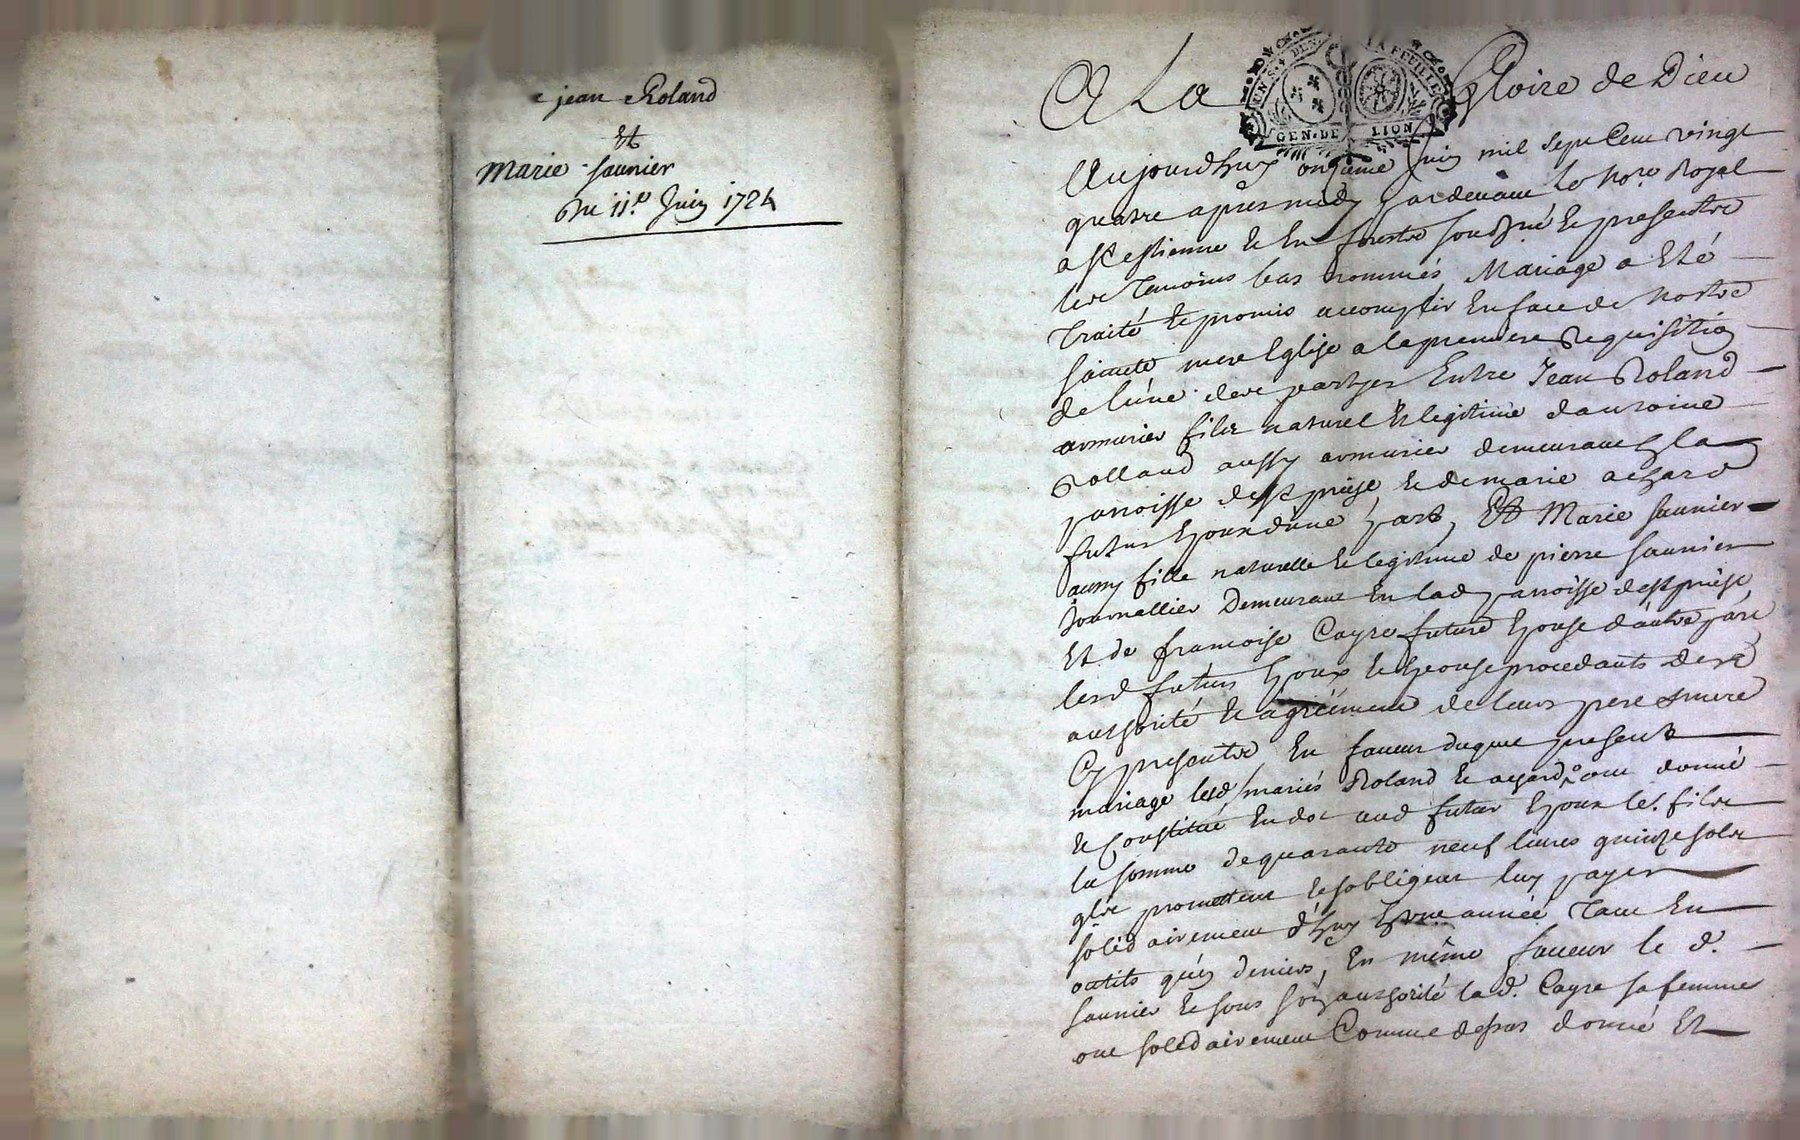 jean Roland
Et
Marie saunier
Du 11.e Juin 1724
A La Gloire de Dieu
GEN. DE LION
Aujourdhuy onzieme Juin mil sept Cent vingt
quatre apres midy pardevant le no.re Royal
a St estienne et En forestz soussigné et presentz
les Temoins bas nommés Mariage a Eté
Traité et promis accomplir En face de nostre
sainte mere Eglise a la premiere Requisition
de lúne des partyes Entre Jean Roland
armurier filz naturel et legitime dantoine
Rolland aussy armurier demeurant En la
parroisse de st priest et de marie achard
futur Epoux dúne part, Et Marie saunier
aussy fille naturelle et legitime de pierre saunier
Journallier Demeurant En lad parroisse de st priest
Et de francoise Cayre future Epouse dáutre part
lesd futurs Epoux et Epouse procedants de
authorité et agréement de leurs pere & mere
Cy presentz En faveur duquel present
mariage lesd mariés Roland et achard ont donné
et Constitué En dot aud futur Epoux le.r filz
la somme de quarante neuf livres quinze solz
qlz promettent et sobligent luy payer
solidairement d'huy En une année Tant En
outils qúen deniers, En même faveur le d.
saunier et sous son authorité lad. Cayre sa femme
ont solidairement Comme dessus donné Et